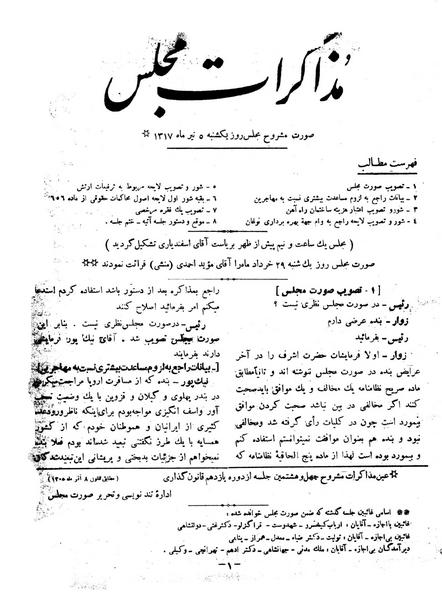 مذاکرات مجلس
صورت مشروح مجلس روز یکشنبه ۵ تیر ماه ۱۳۱۷ *
فهرست مطالب
۱ - تصویب صورت مجلس
۲ - بیانات راجع به لزوم مساعدت بیشتری نسبت به مهاجرین
۳ - شور و تصویب اعتبار هزینه ساختمان راه آهن
۴ - شور و تصویب لایحه راجع به وام جهة بهره برداری نوغان
۵ - شور و تصویب لایحه مربوط به ترفیعات ارتش
۶ - بقیه شور اول لایحه اصول محاکمات حقوقی از ماده ۶۵۶
۷ - تصویب یک فقره مرخصی
۸ - موقع و دستور جلسه آتیه - ختم جلسه .
( مجلس یک ساعت و نیم پیش از ظهر بریاست آقای اسفندیاری تشکیل گردید )
صورت مجلس روز یک شنبه ۲۹ خرداد ماه را آقای مؤید احمدی (منشی) قرائت نمودند **
[ ۱ - تصویب صورت مجلس ]
رئیس - در صورت مجلس نظری نیست ؟
زوار - بنده عرضی دارم
رئیس - بفرمائید
زوار - اولا فرمایشات حضرت اشرف را در آخر
عرایض بنده در صورت مجلس ننوشته اند و ثانیاً مطابق
ماده صریح نظامنامه یک مخالف و یک موافق باید صحبت
کنند اگر مخالفی در بین نباشد صحبت کردن موافق
بیمورد است چون در کلیات رأی گرفته شد و مخالفی
نبود و بنده هم بعنوان موافقت نمیتوانستم استفاده کنم
و بیمورد بوده است لهذا از ماده پنج الحاقیهٔ نظامنامه که
راجع بمذاکره بعد از دستور باشد استفاده کردم استدعا
میکنم امر بفرمائید اصلاح کنند
رئیس - در صورت مجلس نظری نیست . بنابر این
صورت مجلس تصویب شد . آقای نیک پور فرمایشی
دارند بفرمایند
[ ۲ - بیانات راجع به لزوم مساعدت بیشتری نسبت به مهاجرین ]
نیک پور - بنده که از مسافرت اروپا مراجعت میکردم
در بندر پهلوی و گیلان و قزوین با یک وضعیت
آور و اسف انگیزی مواجه بودم برای اینکه ناظر ورود عده
کثیری از ایرانیان و هموطنان خودم که از کشور
همسایه با یک طرز نگفتنی تبعید شده اند بودم فعلا بنده
نمیخواهم از جزئیات بدبختی و پریشانی این تبعید شدگان
* عین مذاکرات مشروح چهل و هشتمین جلسه از دوره یازدهم قانون گذاری
(مطابق قانون ۸ آذر ماه ۱۳۰۵)
اداره تند نویسی و تحریر صورت مجلس
** اسامی غائبین جلسه گذشته که ضمن صورت مجلس خوانده شده :
غائبین بااجازه - آقایان : ارباب کیخسرو - شهدوست - قراگزلو - دکتر غنی - دولتشاهی
غائبین بی اجازه - آقایان : تولیت - دکتر ضیاء - معدل - همراز - بنامی
دیر آمدگان بی اجازه - آقایان : ملک مدنی - جهانشاهی - دکتر ادهم - تهرانچی - وکیلی .
- ۱ -